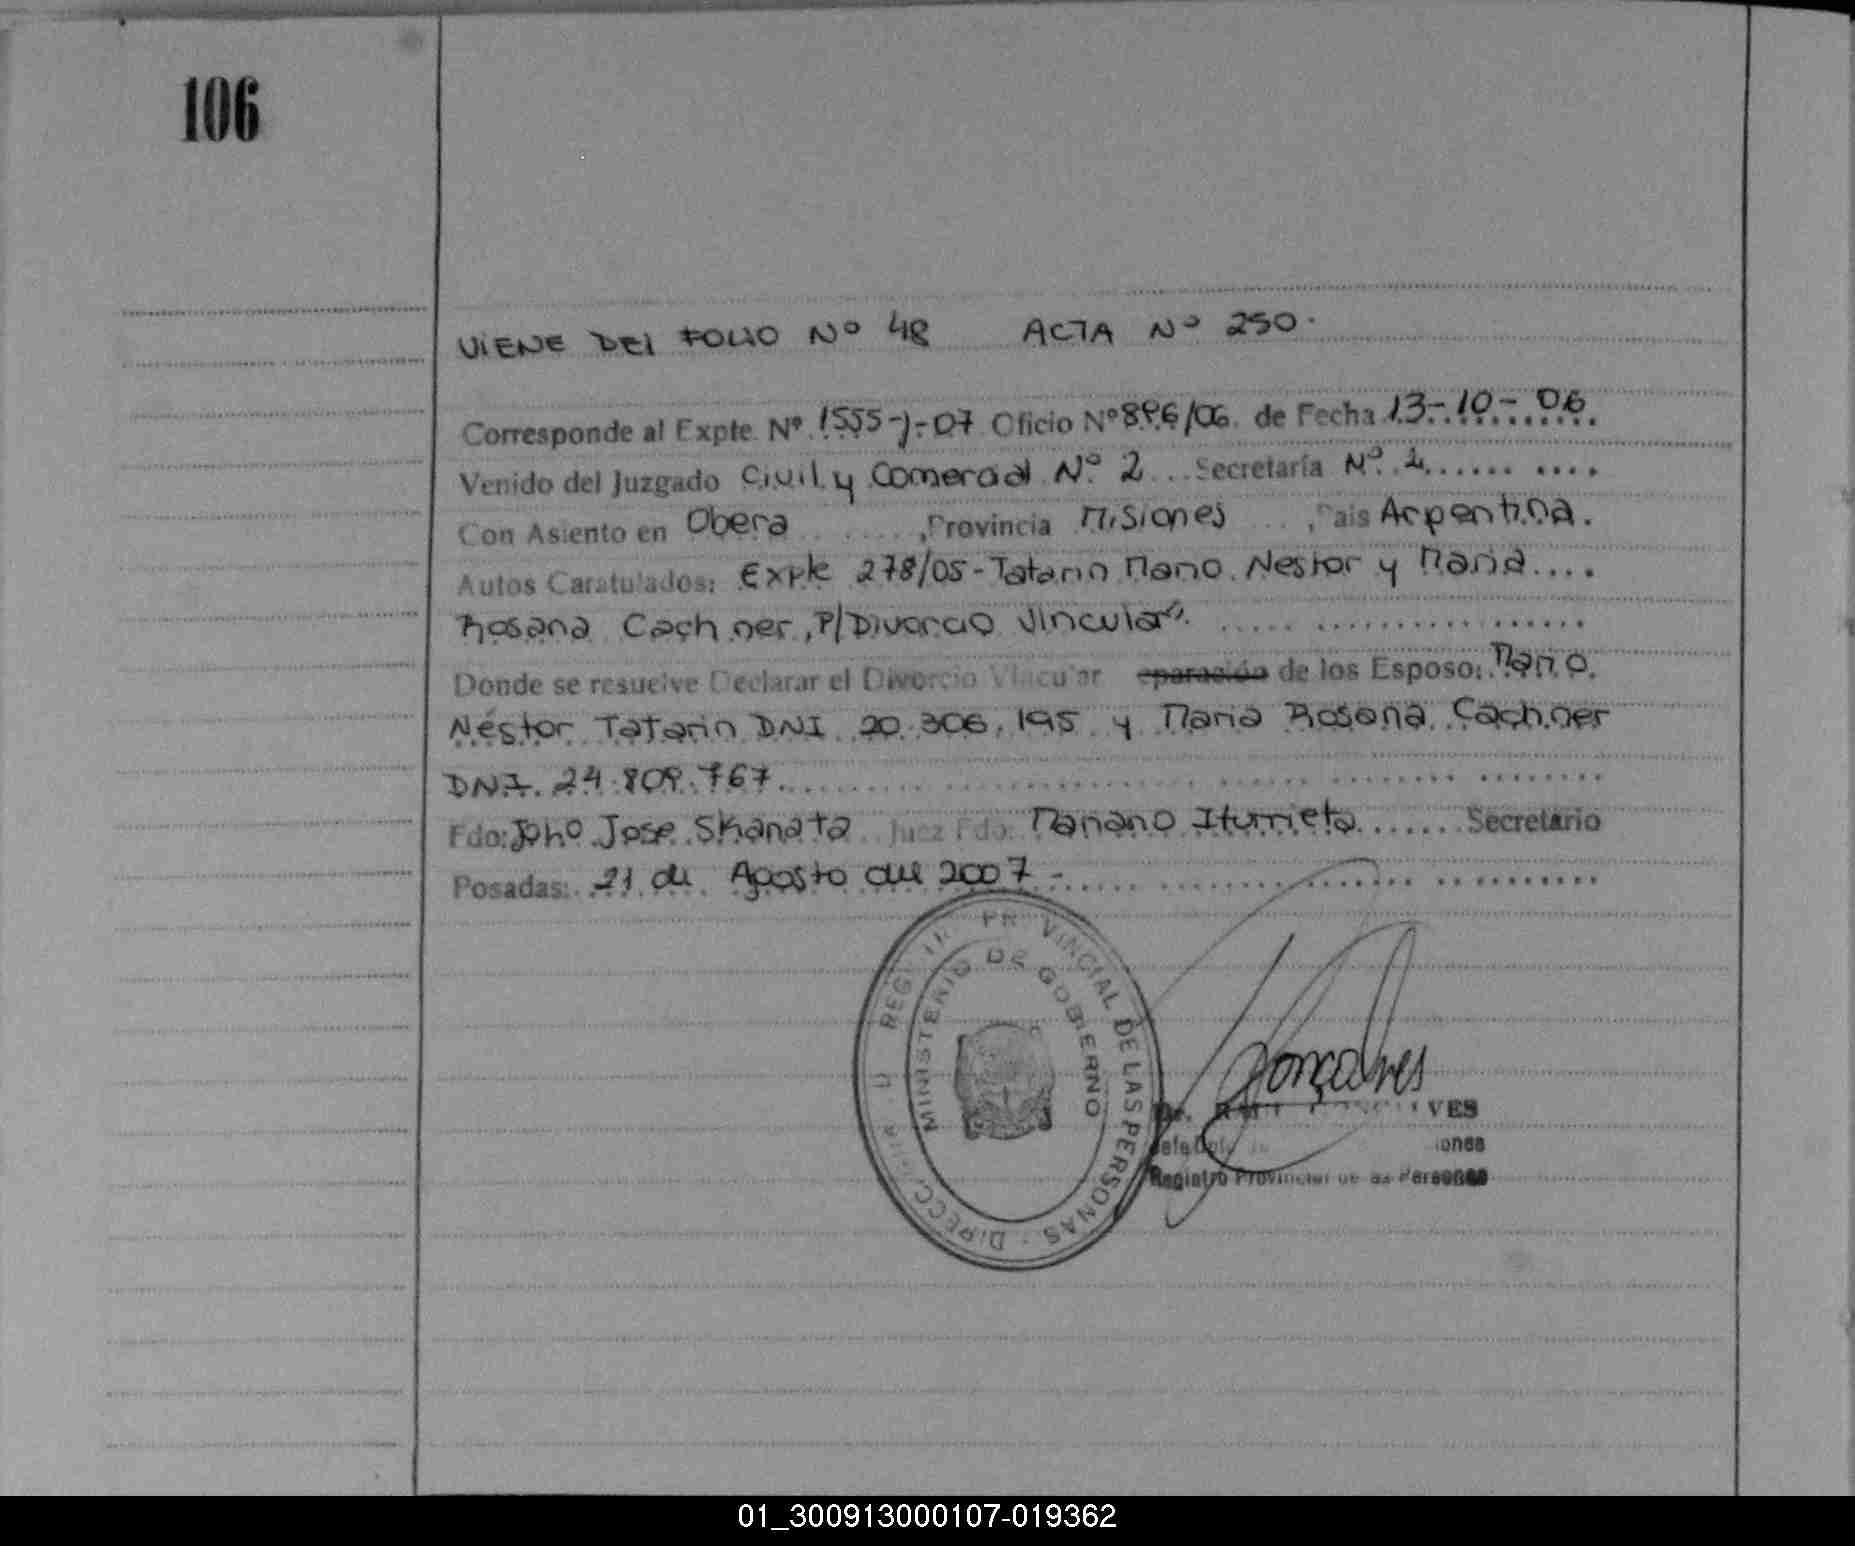 106
VIENE DEl FOLIO Nº 48 ACTA Nº 250.
Corresponde al Expte. Nº 1555-J-07 Oficio Nº 896/06. de Fecha 13-10-06
Venido del Juzgado Civil y Comercial Nº 2 Secretaría Nº 2
Con Asiento en Obera, Provincia Misiones, Pais Argentina.
Autos Caratulados: Expte 278/05-Tatarin Mario Nestor y Maria
Rosana Cachner, P/Divorcio Vincular".
Donde se resuelve Declarar el Divorcio Vincular eparación de los Esposo: Mario
Néstor Tatarin DNI 20.306.195 y Maria Rosana Cachner
DNI. 24.809.767
Fdo: Jose Skanata Juez Fdo: Mariano Iturrieta Secretario
Posadas: 21 de Agosto del 2007-
PROVINCIAL DE LAS PERSONAS
MINISTERIO DE GOBIERNO
Gonçalves
Registro Provincial de las Personas
01_300913000107-019362